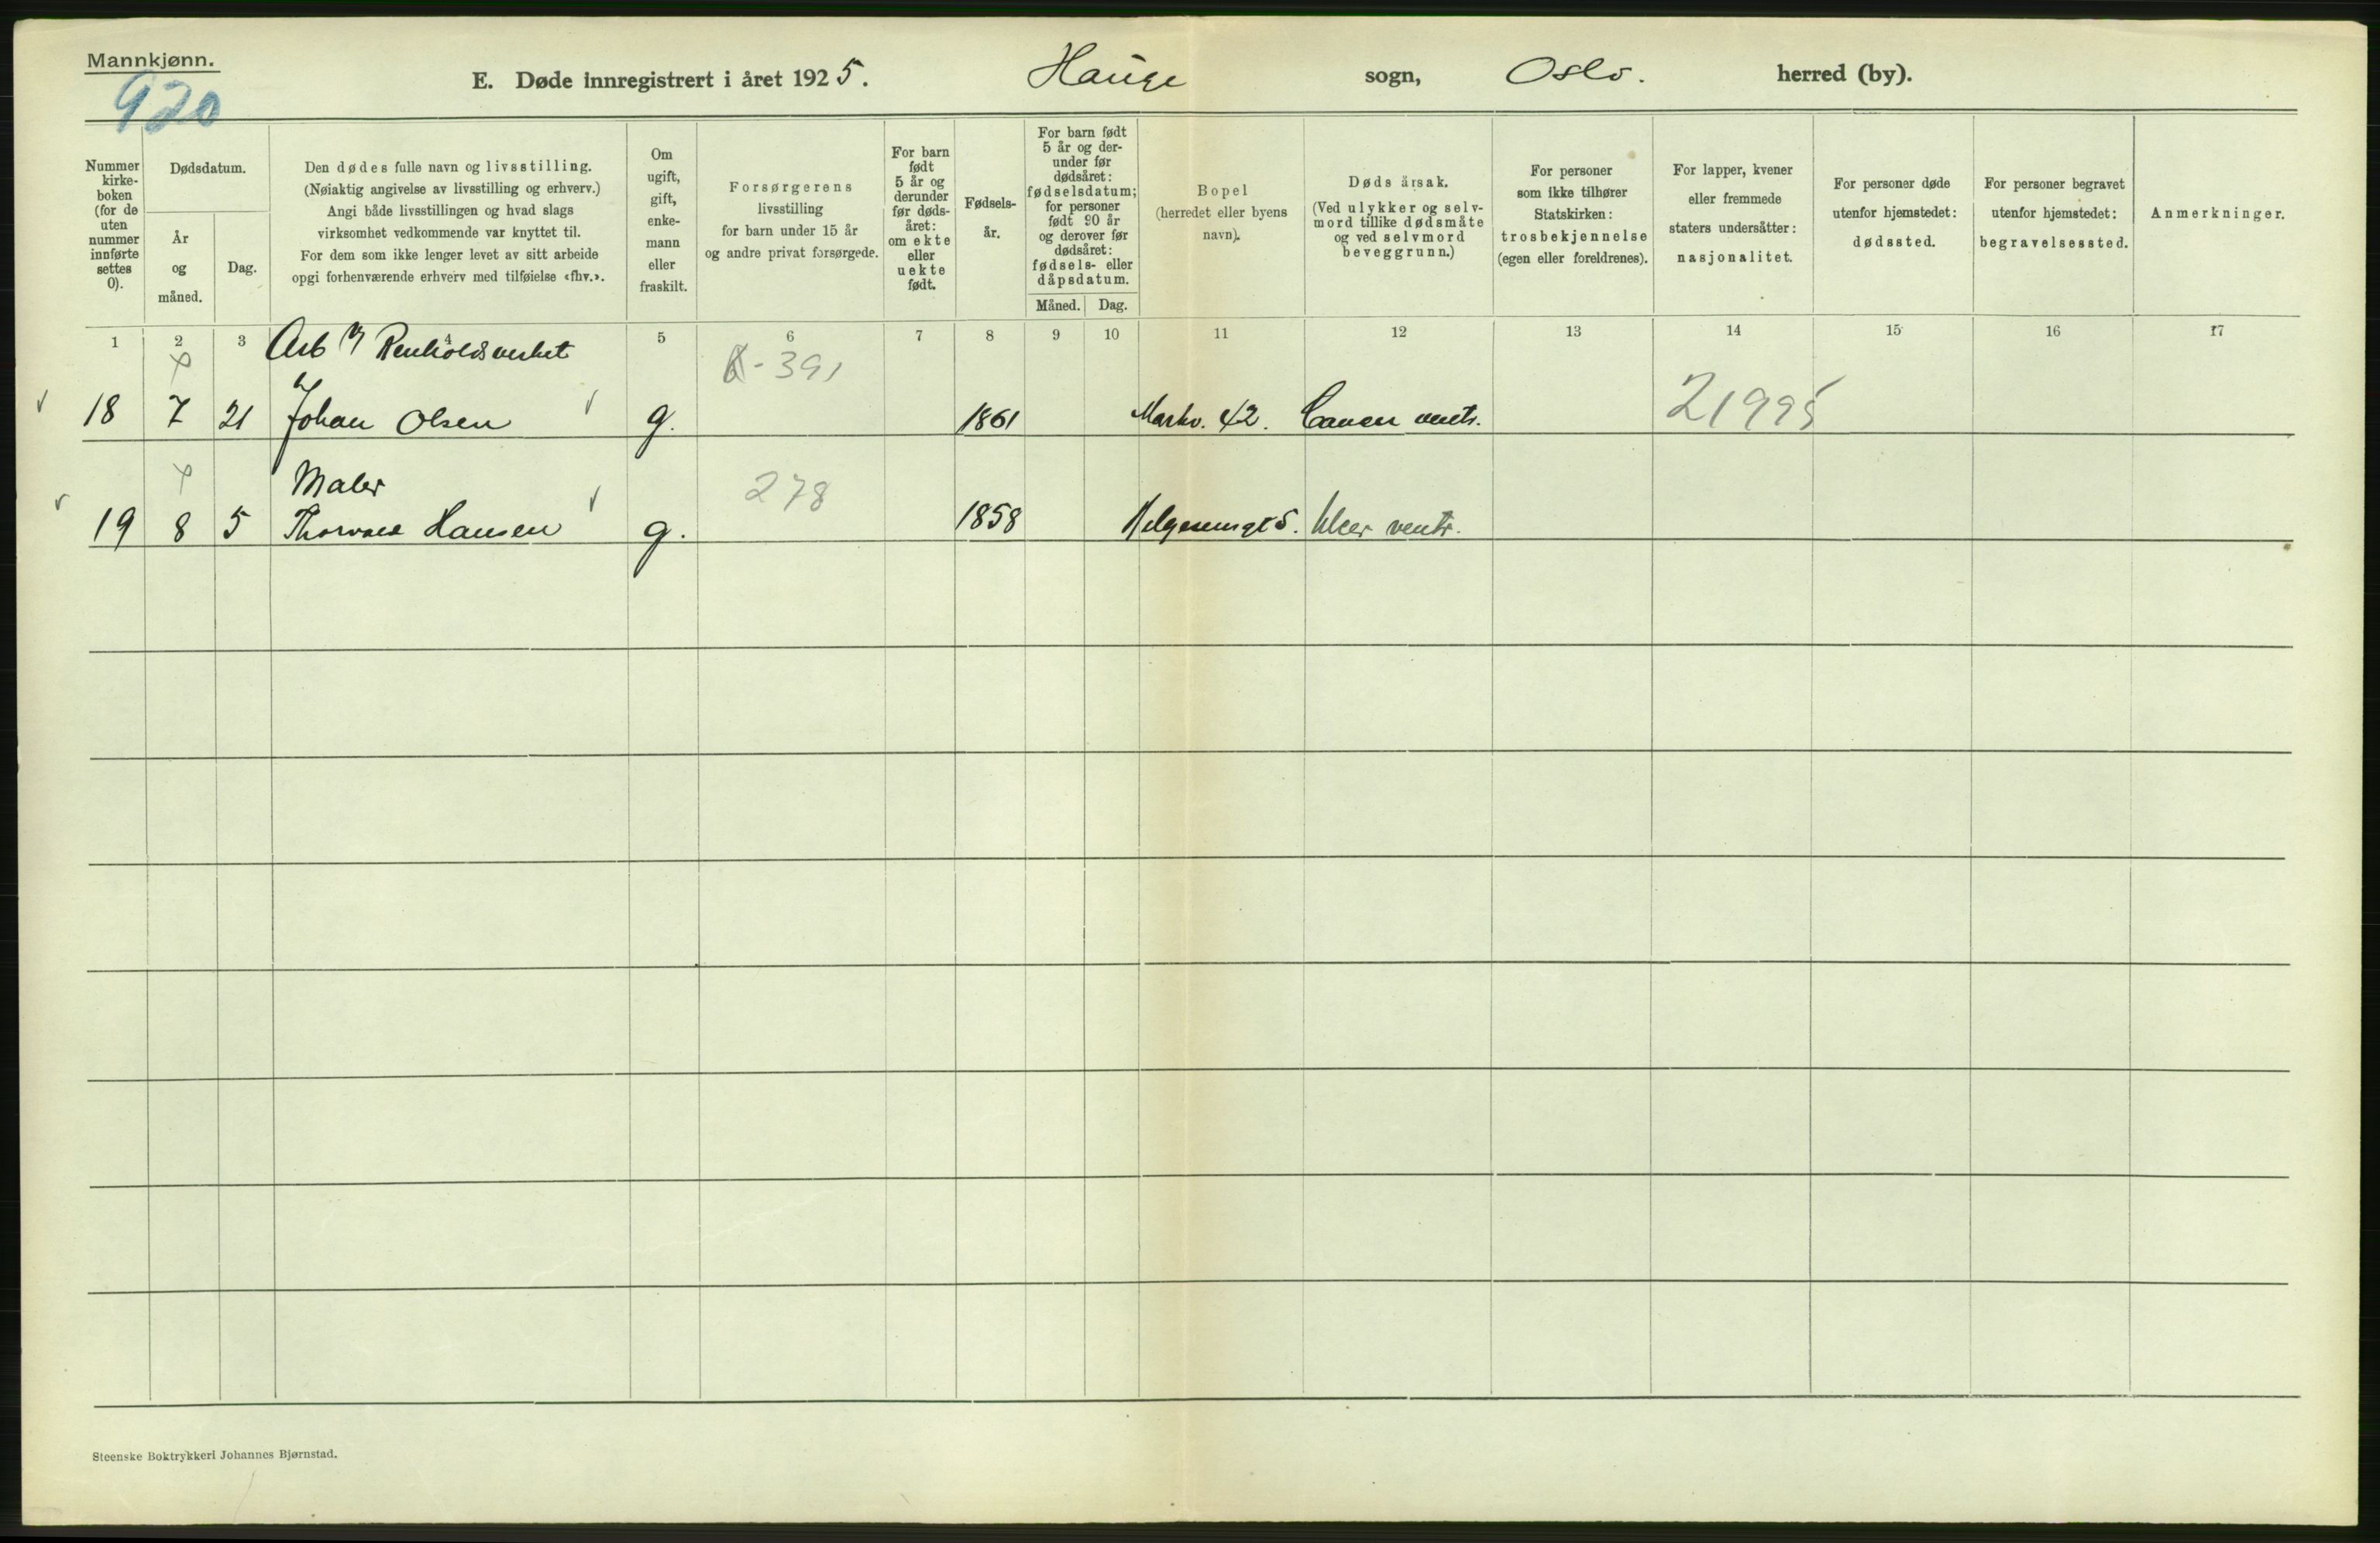 Mannkjønn.
920
E. Døde innregistrert i året 1925. Hauge sogn, Oslo. herred (by).
Nummer
kirke-
boken
(for de
uten
nummer
innførte
settes
0).
Dødsdatum.
År
og
måned.
Dag.
Den dødes fulle navn og livsstilling.
(Nøiaktig angivelse av livsstilling og erhverv.)
Angi både livsstillingen og hvad slags
virksomhet vedkommende var knyttet til.
For dem som ikke lenger levet av sitt arbeide
opgi forhenværende erhverv med tilføielse «fhv.».
Om
ugift,
gift,
enke-
mann
eller
fraskilt.
Forsørgerens
livsstilling
for barn under 15 år
og andre privat forsørgede.
For barn
født
5 år og
derunder
før døds-
året:
om ekte
eller
uekte
født.
Fødsels-
år.
For barn født
5 år og der-
under før
dødsåret:
fødselsdatum;
for personer
født 90 år
og derover før
dødsåret:
fødsels- eller
dåpsdatum.
Måned. Dag.
Bopel
(herredet eller byens
navn).
Dødsårsak.
(Ved ulykker og selv-
mord tillike dødsmåte
og ved selvmord
beveggrunn.)
For personer
som ikke tilhører
Statskirken:
trosbekjennelse
(egen eller foreldrenes).
For lapper, kvener
eller fremmede
staters undersåtter:
nasjonalitet.
For personer døde
utenfor hjemstedet:
dødssted.
For personer begravet
utenfor hjemstedet:
begravelsessted.
Anmerkninger.
1 2 3 4 5 6 7 8 9 10 11 12 13 14 15 16 17
Arb v Renholdsverket
391
18 7 21 Johan Olsen g. 1861 Markv. 42. Cancer ventr. 21995
Maler
278
19 8 5 Thorvald Hansen g. 1858 Helgesensgt 5. Ulcer ventr.
Steenske Boktrykkeri Johannes Bjørnstad.